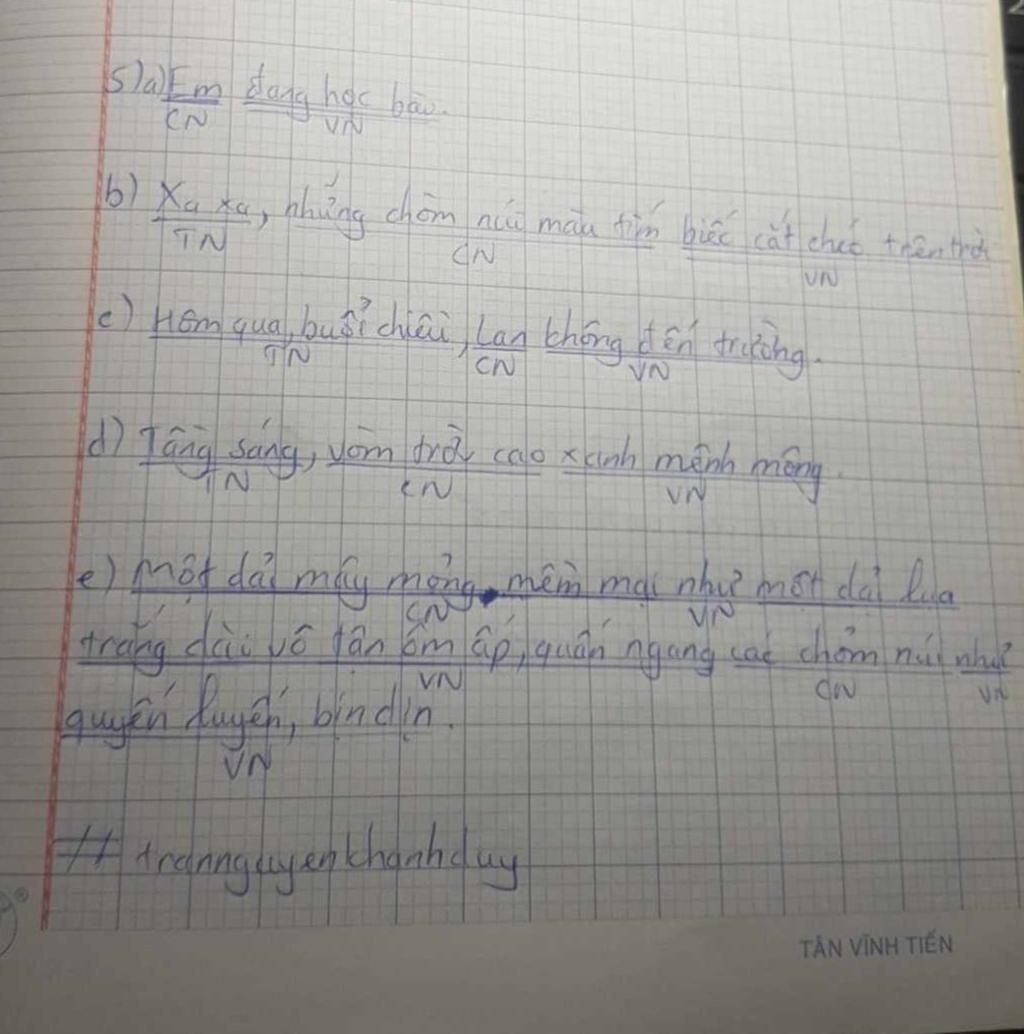 5)a) Em đang học bài.
CN VN
b) Xa xa, những chỏm núi màu tím biếc cắt chéo trên trời
TN CN VN
c) Hôm qua, buổi chiều, Lan không đến trường.
TN CN VN
d) Tảng sáng, vòm trời cao xanh mênh mông.
TN CN VN
e) Một dải mây mỏng, mềm mại như một dải lụa
CN VN
trắng dài vô tận ôm ấp, quấn ngang các chỏm núi như
VN CN VN
quyến luyến, bịn dịn.
VN
# trannguyenkhanhduy
TÂN VĨNH TIẾN